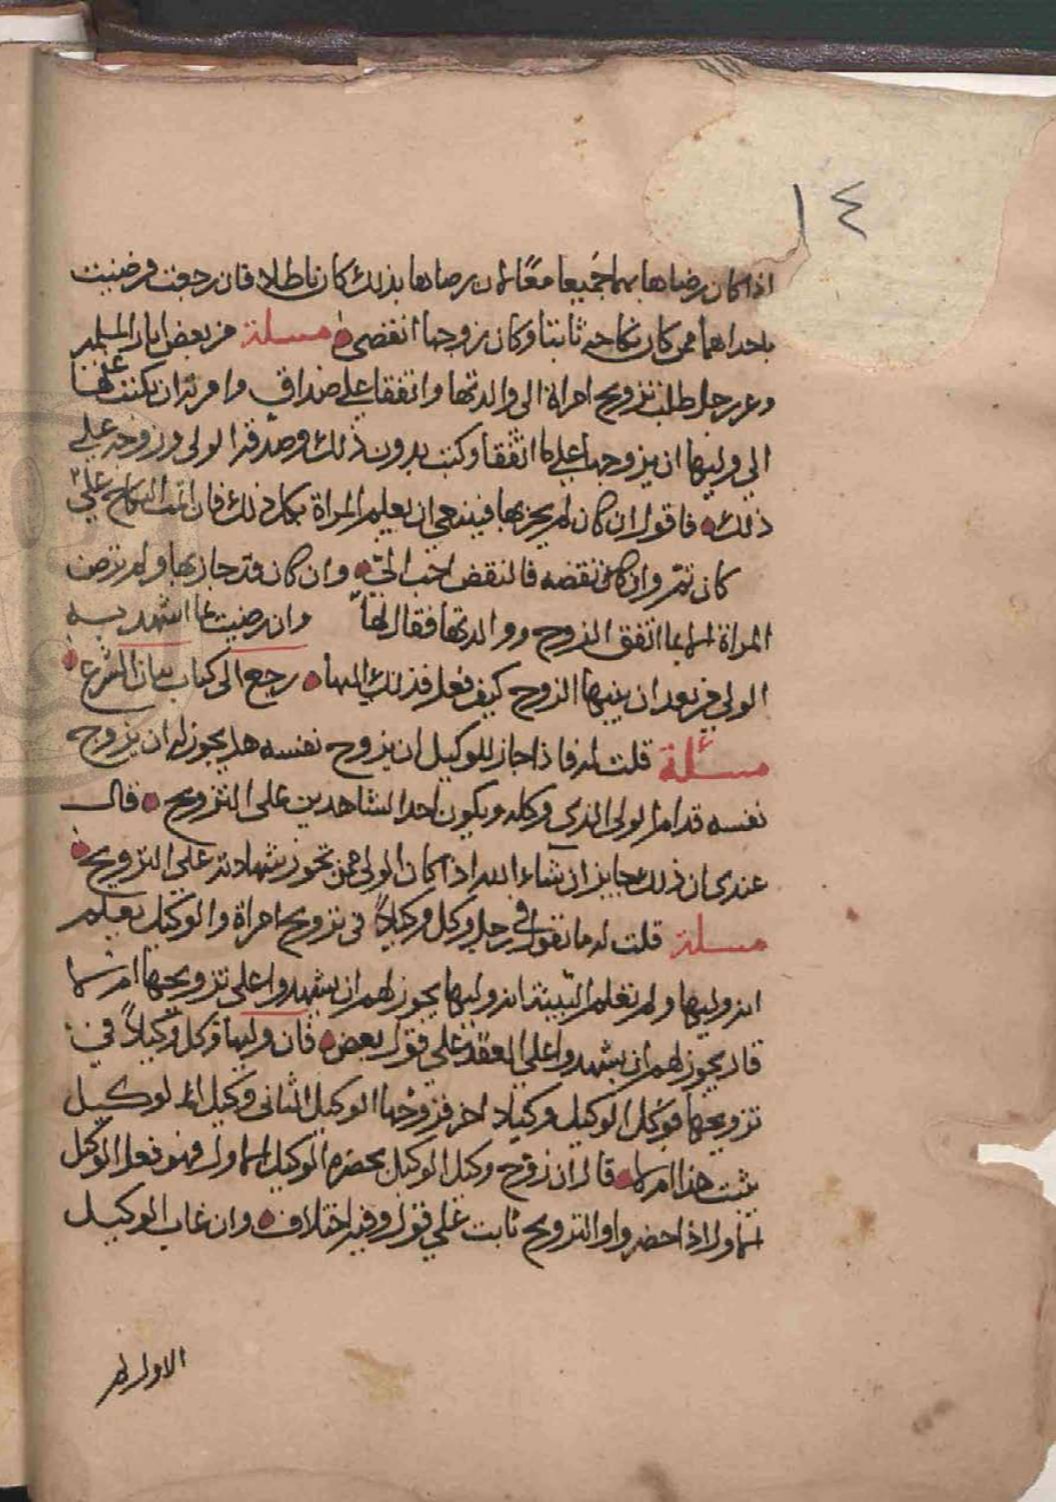 ١٤
اذا كان رضاها بهما جميعا معا لان رضاها بذلك كان باطلا فان رجعت فرضيت
باحداهما فمن كان نكاحه ثابتا وكان زوجها انقضى مسلة من بعض اثار المسلمين
وعن رجل طلب تزويج امراة الى والدتها واتفقا على صداق وامرته ان يكتب عنها
الى وليها ان يزوجها على ما اتفقا وكتب بدون ذلك وصدقه الولى وزوجه على
ذلك فاقول ان كان لم يجز بها فينبغي ان يعلم المراة بكل ذلك فان اتمت النكاح على
كان تم وان كان نقضه فالنقض احب الي وان كان قد جاز بها ولم ترض
المراة الا بما اتفق الزوج ووالدتها فقال لها وان رضيت بما اشهد به
الولى من بعد ان ينبها الزوج كيف فعل فذلك اليها رجع الى كتاب بيان الشرع
مسئلة قلت له فاذا جاز للوكيل ان يزوج نفسه هل يجوز له ان يزوج
نفسه قدام الولى الذى وكله ويكون احد الشاهدين على التزويج قال
عندى ان ذلك جايز ان شاء الله اذا كان الولى ممن تجوز شهادته على التزويج
مسلة قلت له ما تقول في رجل وكل وكيلاً فى تزويج امراة والوكيل يعلم
انه وليها ولم تعلم البينة انه وليها يجوز لهم ان يشهدوا على تزويجها ام لا
قال يجوز لهم ان يشهدوا على العقد على قول بعض فان وليها وكل وكيلاً في
تزويجها فوكل الوكيل وكيلا اخر فزوجها الوكيل الثانى وكيل الوكيل
يثبت هذا ام لا قال ان زوج وكيل الوكيل بحضرة الوكيل الاول فهو فعل الوكيل
الاول اذا حضروا والتزويج ثابت على قول وفيه اختلاف وان غاب الوكيل
الاول لم